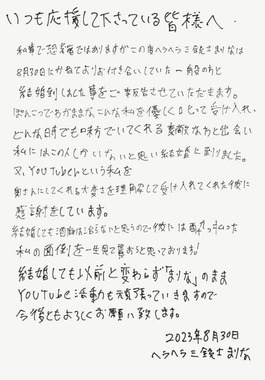 いつも応援して下さっている皆様へ
私事で恐縮ではありますがこの度ヘラヘラ三銃士まりなは
8月30日にかねてよりお付き合いしていた一般の方と
結婚致しました事をご報告させていただきます。
ぽんこつでわがままな、こんな私を優しく受け入れ、
どんな時でも味方でいてくれる素敵な方と出会い
私にはこの人しかいないと思い結婚に至りました。
又、YouTuberという私を
奥さんにしてくれる大変さを理解して受け入れてくれた彼に
感謝をしています。
結婚しても酒癖は治らないと思うので彼には酔っ払った
私の面倒を一生見て貰おうと思っております!
結婚しても以前と変わらず「まりな」のまま
YouTube活動も頑張っていきますので
今後ともよろしくお願い致します。
2023年8月30日
ヘラヘラ三銃士まりな